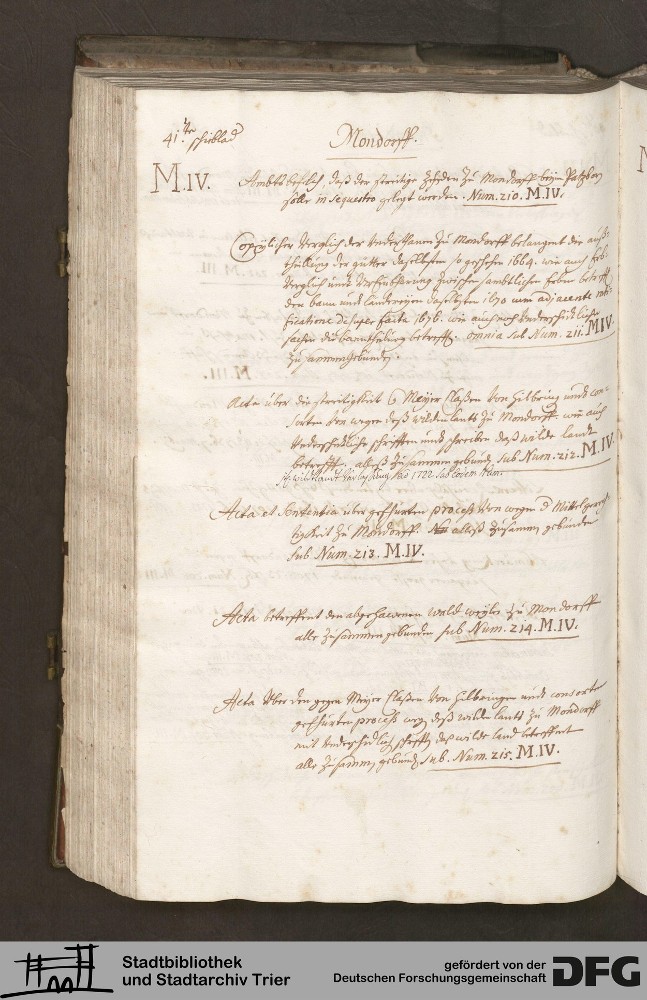 41.te schieblad
Mondorff.
M.IV.
Ambtsbefelch, daß der streitige Zehnden zu Mondorff beym Patzbor
solle in sequestro gelegt werden. Num. 210. M.IV.
Copeylicher Verglich der Underthanen zu Mondorff belangent die auß-
theillung der gütter daselbsten so geschehen 1664. wie auch
Verglich undt zwischen sambtlichen Erben betreff
den bann undt daselbsten 1670 cum adjacente rati-
ficatione desuper facta 1676. wie auch noch Underschidliche
sachen die banntheilung betreff. omnia sub Num. 211. M.IV.
Zusammengebunden.
Acta über die streitigkeit Meyer Claßen von Hilbring undt con-
sorten von wegen deß wildenlants zu Mondorff. wie auch
Underschidliche schrifften undt schreiben daß wilde landt
betrefft. alleß zusammen gebund. sub Num. 212. M.IV.
1722 sub eodem Num.
Acta et Sententia über geführten process von wegen d Mittelgerech-
tigkeit zu Mondorff. alleß zusammen gebunden
sub Num. 213. M.IV.
Acta betreffent den abgehawenen wald zu Mondorff
alle zusammen gebunden sub Num. 214. M.IV.
Acta über den gegen Meyer Claßen von Hilbringen undt consorten
geführten process wegen deß wilden lants zu Mondorff
mit Underschidlich schrifften das wilde land betreffent
alle zusammen gebunden sub. Num. 215. M.IV.
Stadtbibliothek
und Stadtarchiv Trier
gefördert von der
Deutschen Forschungsgemeinschaft
DFG